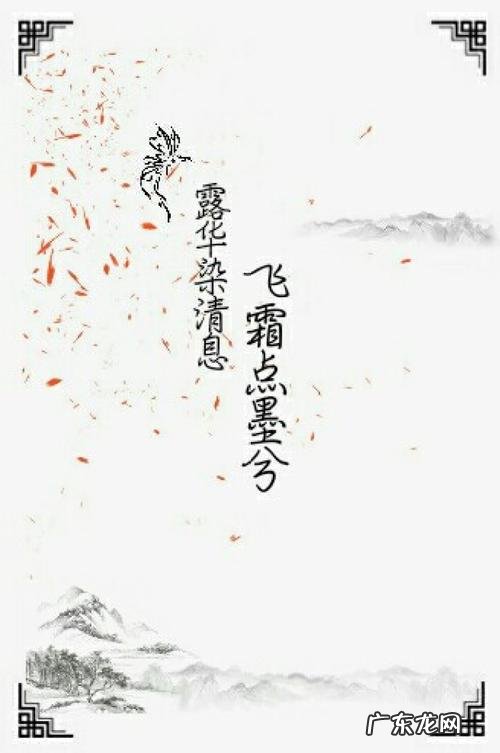 飞霜点墨兮
露华染清息
广东龙网